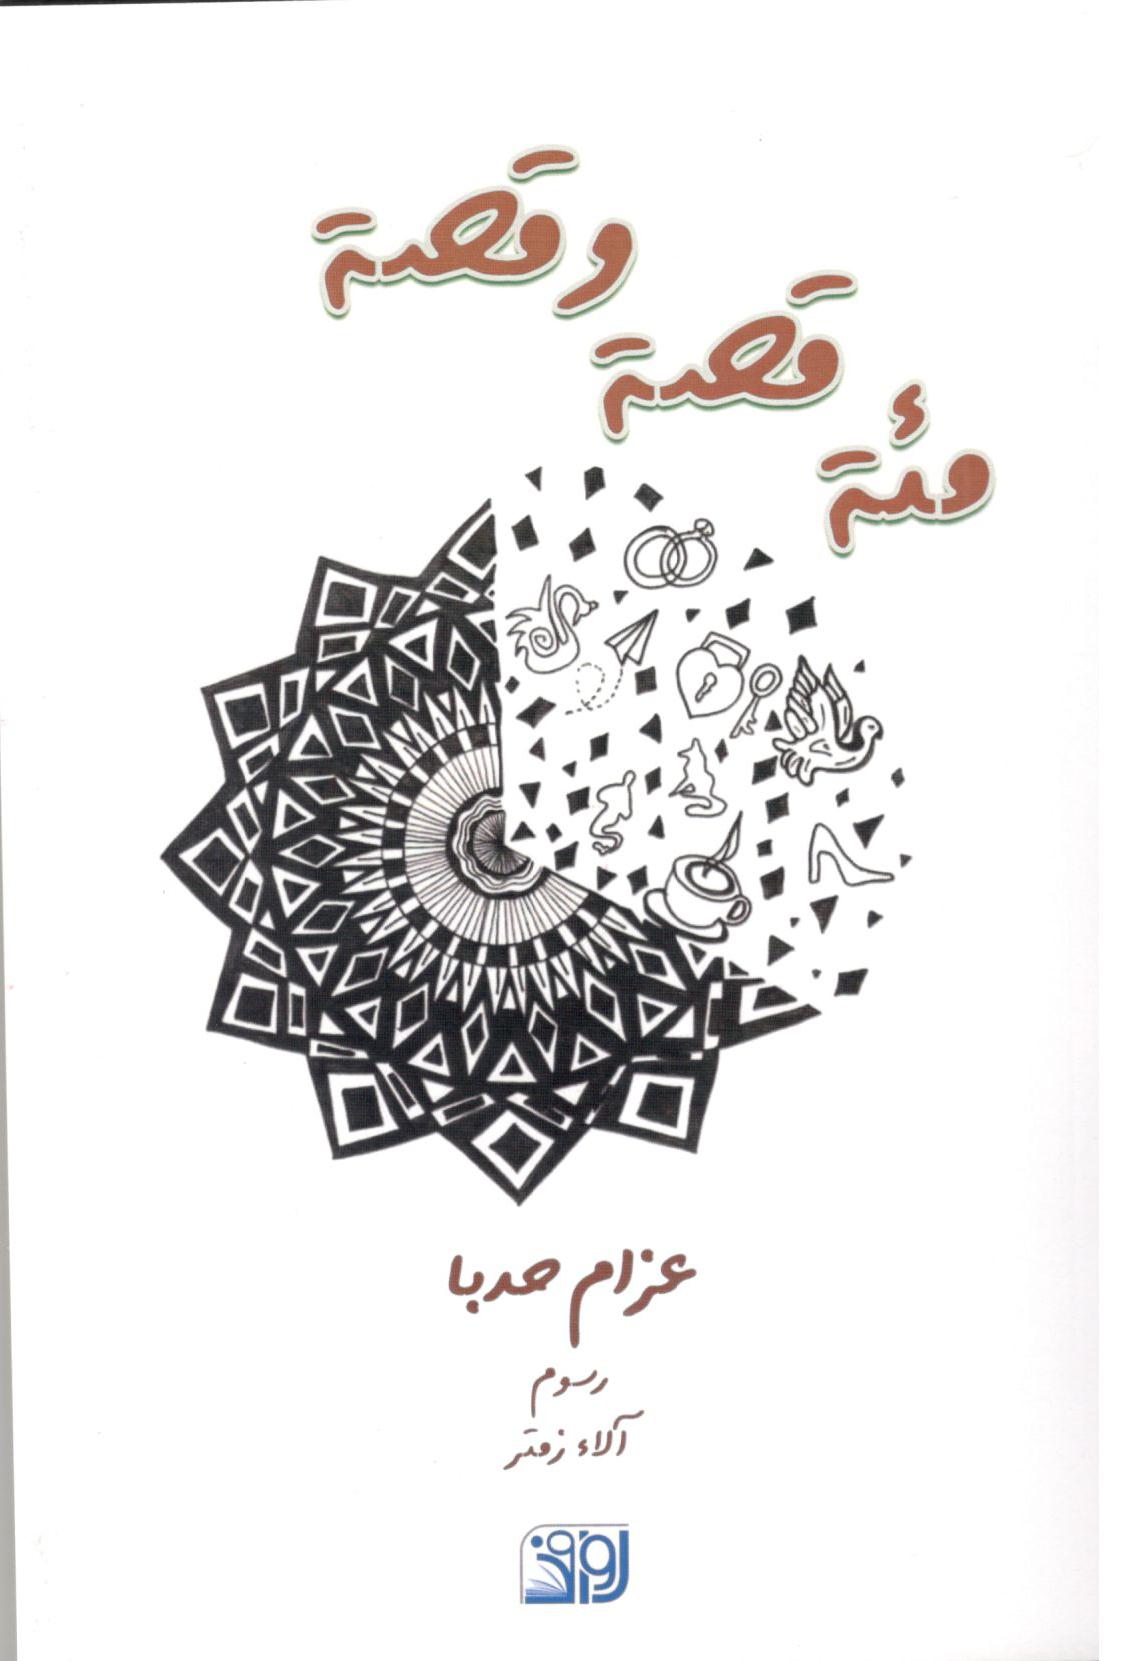 مئة
قصة
وقصة
عزام حدبا
رسوم
آلاء زفتر